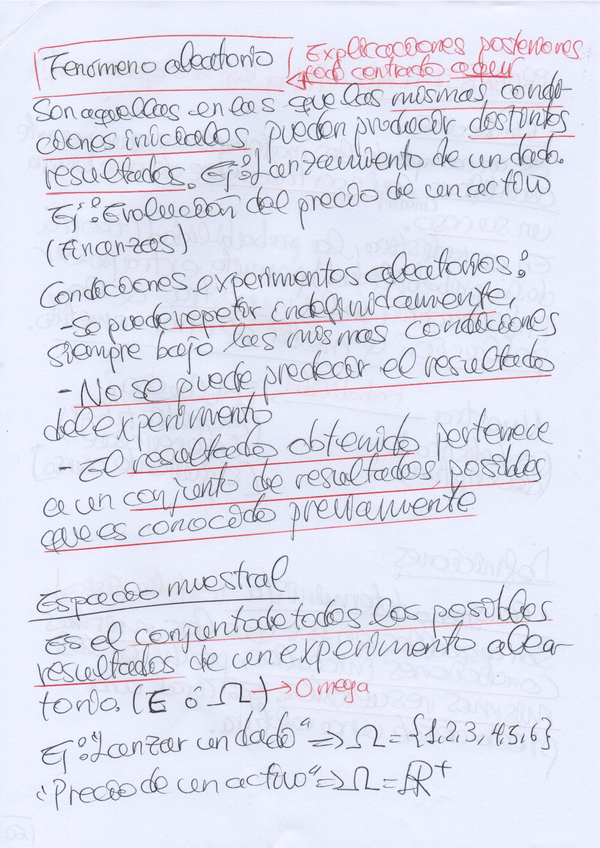 Fenómeno aleatorio
Explicaciones posteriores
todo centrado aquí
Son aquellas en las que las mismas condi-
ciones iniciales pueden producir distintos
resultados. Ej: Lanzamiento de un dado.
Ej: Evolución del precio de un activo
(Finanzas)
Condiciones experimentos aleatorios:
- Se puede repetir indefinidamente,
siempre bajo las mismas condiciones
- No se puede predecir el resultado
del experimento
- El resultado obtenido pertenece
a un conjunto de resultados posibles
que es conocido previamente
Espacio muestral
Es el conjunto de todos los posibles
resultados de un experimento alea-
torio. (E o Ω) → Omega
Ej: "Lanzar un dado" ⇒ Ω = {1,2,3,4,5,6}
"Precio de un activo" ⇒ Ω = ℝ⁺